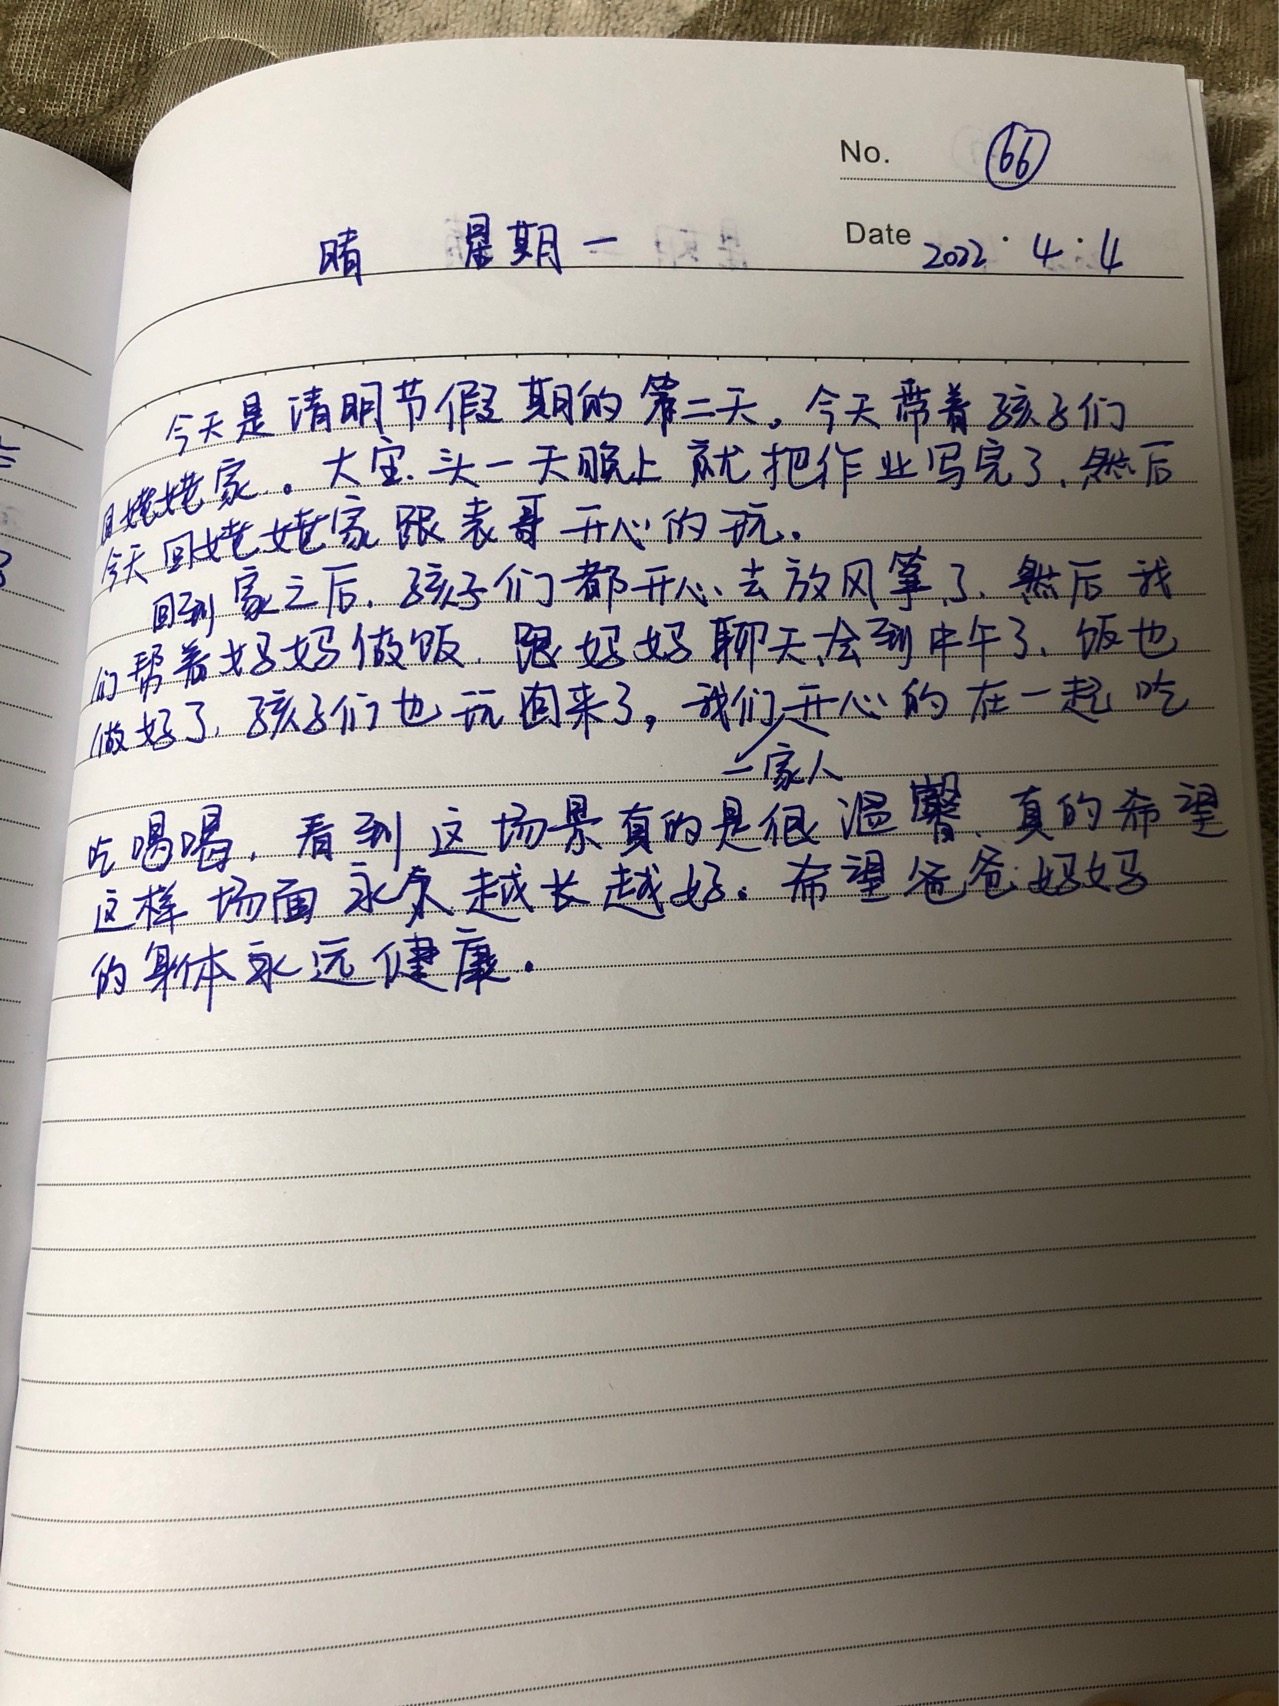 No. 66
晴 星期一 Date 2022·4·4
今天是清明节假期的第二天。今天带着孩子们
回姥姥家。大宝头一天晚上就把作业写完了、然后
今天回姥姥家跟表哥开心的玩。
回到家之后、孩子们都开心去放风筝了、然后我
们帮着妈妈做饭、跟妈妈聊天、会到中午了、饭也
做好了、孩子们也玩回来了,我们开心的在一起吃
一家人
吃喝喝,看到这场景真的是很温馨、真的希望
这样场面永久越长越好。希望爸爸妈妈
的身体永远健康.